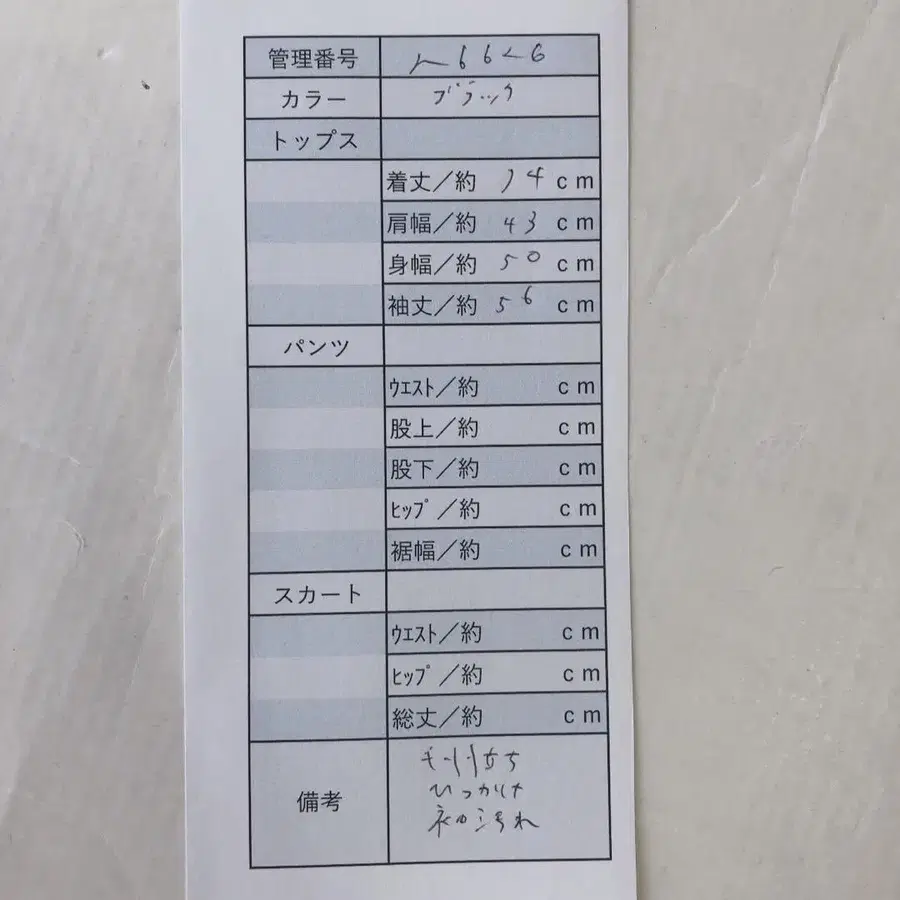 管理番号
カラー ブラック
トップス
着丈／約 74 cm
肩幅／約 43 cm
身幅／約 50 cm
袖丈／約 56 cm
パンツ
ｳｴｽﾄ／約 cm
股上／約 cm
股下／約 cm
ﾋｯﾌﾟ／約 cm
裾幅／約 cm
スカート
ｳｴｽﾄ／約 cm
ﾋｯﾌﾟ／約 cm
総丈／約 cm
備考
毛羽立ち
ひっかけ
袖汚れ